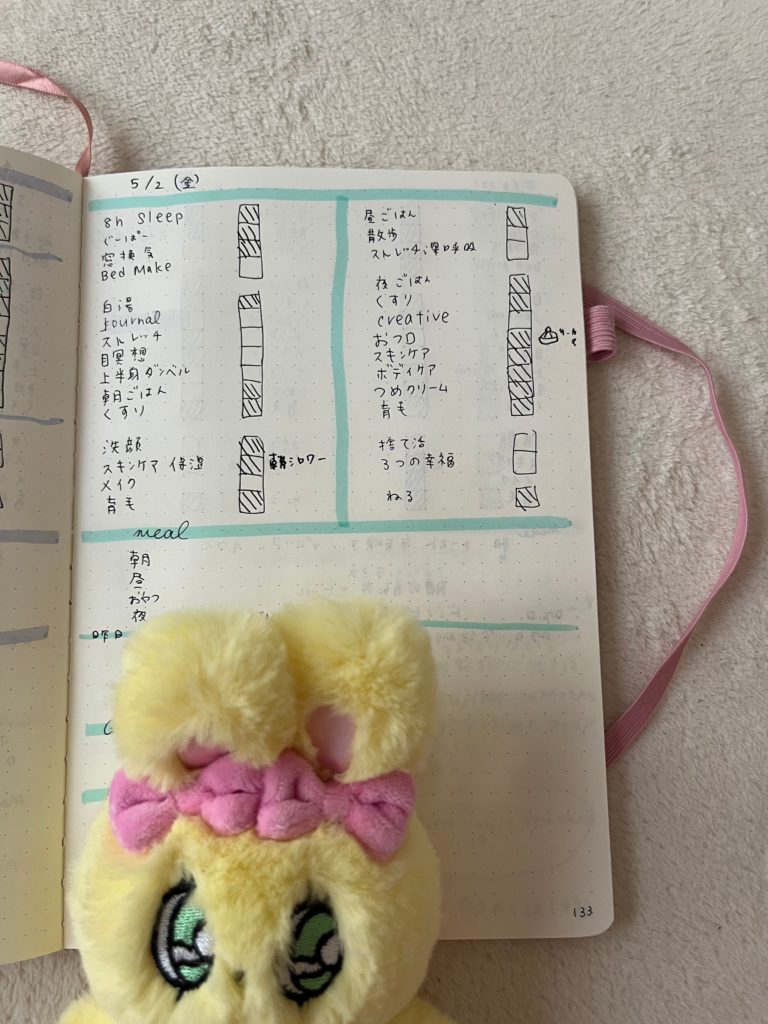 5/2 (金)
8h sleep
ぐーぱー
窓換気
Bed Make
白湯
Journal
ストレッチ
瞑想
上半身ダンベル
朝ごはん
くすり
洗顔
スキンケア 保湿
朝シャワー
メイク
育毛
昼ごはん
散歩
ストレッチ、深呼吸
夜ごはん
くすり
creative
おフロ
スキンケア
ボディケア
つめクリーム
育毛
捨て活
3つの幸福
ねる
meal
朝
昼
おやつ
夜
昨日
133